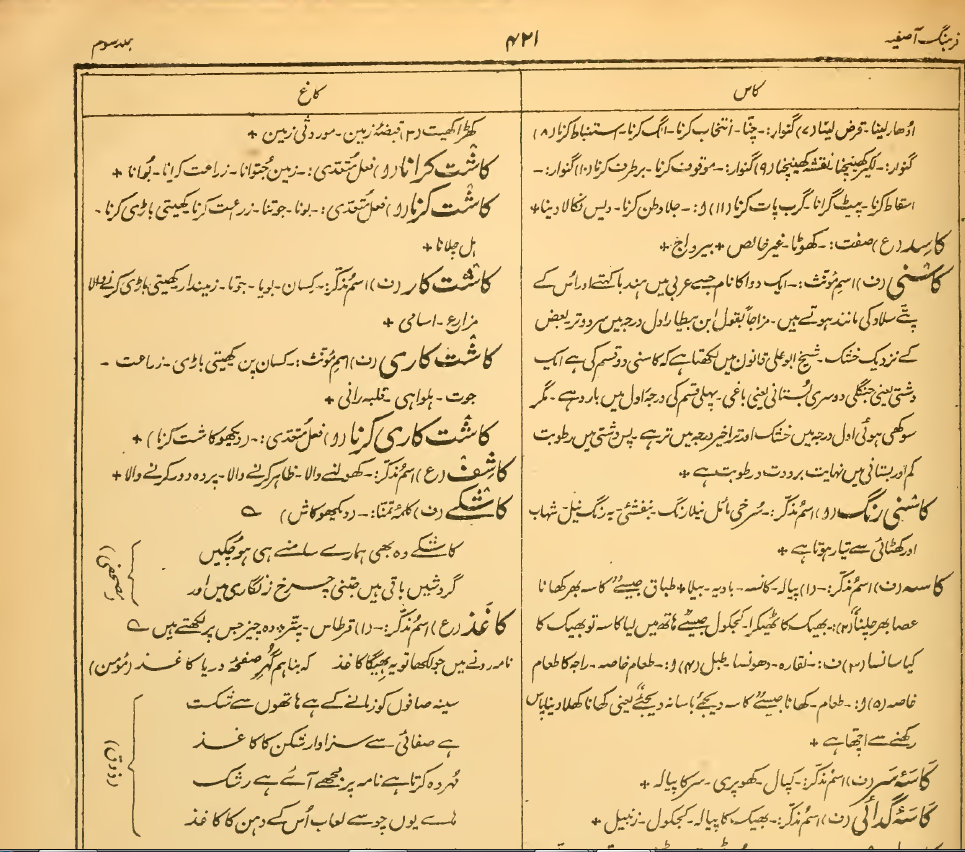 فرہنگ آصفیہ
۴۲۱
جلد سوم
کاس
اُدھار لینا۔ قرض لینا (۷) گنوار:۔ چننا۔ انتخاب کرنا۔ الگ کرنا۔ استنباط کرنا (۸)
گنوار:۔ لکیر کھینچنا۔ نقشہ کھینچنا (۹) گنوار:۔ موقوف کرنا۔ برطرف کرنا (۱۰) گنوار:۔
اسقاط کرنا۔ پیٹ گرانا۔ گرب پات کرنا (۱۱) و:۔ جلا وطن کرنا۔ دیس نکالا دینا +
کاسِد (ع) صفت:۔ کھوٹا۔ غیر خالص + بیرواج +
کاسنی (ف) اسمِ مُونّث:۔ ایک دوا کا نام جسے عربی میں ہندبا کہتے اور اُس کے
پتّے سلاد کی مانند ہوتے ہیں۔ مزاجاً بقول ابن بیطار اوّل درجہ میں سرد و تر بعض
کے نزدیک خشک۔ شیخ ابو علی قانون میں لکھتا ہے کہ کاسنی دو قسم کی ہے ایک
دشتی یعنی جنگلی دوسری بُستانی یعنی باغی۔ پہلی قسم کی درجۂ اول میں بارد ہے۔ مگر
سوکھی ہوئی اول درجہ میں خشک اور تر آخر درجہ میں تر ہے۔ پس دشتی میں رطوبت
کم اور بستانی میں نہایت برودت و رطوبت ہے +
کاسنی رنگ (و) اسمِ مُذکّر:۔ سُرخی مائل نیلا رنگ۔ بنفشئی۔ یہ رنگ نیل۔ شہاب
اور کھٹائی سے تیار ہوتا ہے +
کاسہ (ف) اسمِ مُذکّر:۔ (۱) پیالہ۔ کانسہ۔ بادیہ۔ بیلا + طباق جیسے کاسہ بھر کھانا
عصا بھر چلنا (۲):۔ بھیک کا ٹھیکرا۔ کجکول جیسے ہاتھ میں لیا کاسہ تو بھیک کا
کیا سانسا (۳) ف:۔ نقارہ۔ دھونسا۔ طبل (۴) و:۔ طعام خاصہ۔ راجہ کا طعام
خاصہ (۵) و:۔ طعام۔ کھانا جیسے کاسہ دیجئے باسا نہ دیجئے یعنی کھانا کھلا دینا پاس
رکھنے سے اچھا ہے +
کاسۂ سَر (ف) اسمِ مُذکّر:۔ کپال۔ کھوپری۔ سر کا پیالہ +
کاسۂ گدائی (ف) اسمِ مُذکّر:۔ بھیک کا پیالہ۔ کجکول۔ زنبیل +
کاغ
کھڑا کھیت (۳) قبضۂ زمین۔ موروثی زمین +
کاشت کرانا (و) فعل مُتعدّی:۔ زمین جُتوانا۔ زراعت کرانا۔ بُوانا +
کاشت کرنا (و) فعل مُتعدّی:۔ بونا۔ جوتنا۔ زراعت کرنا۔ کھیتی باڑی کرنا۔
ہل چلانا +
کاشت کار (ف) اسمِ مُذکّر:۔ کسان۔ بویا۔ جوتا۔ زمیندار۔ کھیتی باڑی کرنے والا
مزارع۔ اسامی +
کاشت کاری (ف) اسمِ مُونّث:۔ کسان پن۔ کھیتی باڑی۔ زراعت۔
جوت۔ ہلواہی۔ قلبہ رانی +
کاشت کاری کرنا (و) فعل مُتعدّی:۔ (دیکھو کاشت کرنا) +
کاشِف (ع) اسمِ مُذکّر:۔ کھولنے والا۔ ظاہر کرنے والا۔ پردہ دور کرنے والا +
کاشکے (ف) کلمۂ تمنّا:۔ (دیکھو کاش) ؎
کاشکے وہ بھی ہمارے سامنے ہی ہو چکیں
گردشیں باقی ہیں جتنی چرخ زنگاری میں اور
(مصحفی)
کاغذ (ع) اسمِ مُذکّر:۔ (۱) قرطاس۔ پتر + وہ چیز جس پر لکھتے ہیں ؎
نامہ رونے میں جو لکھا تو یہ بھیگا کاغذ   کہ بنا ہم گہرِ صفحۂ دریا کاغذ   (مُومن)
سینہ صافوں کو زمانے کے ہے ہاتھوں سے شکست
ہے صفائی سے سزاوار شکن کا کاغذ
مُہر وہ کرتا ہے نامہ پر مجھے آئے ہے رشک
لے یوں چوسے لعاب اُس کے دہن کا کاغذ
(ذوق)